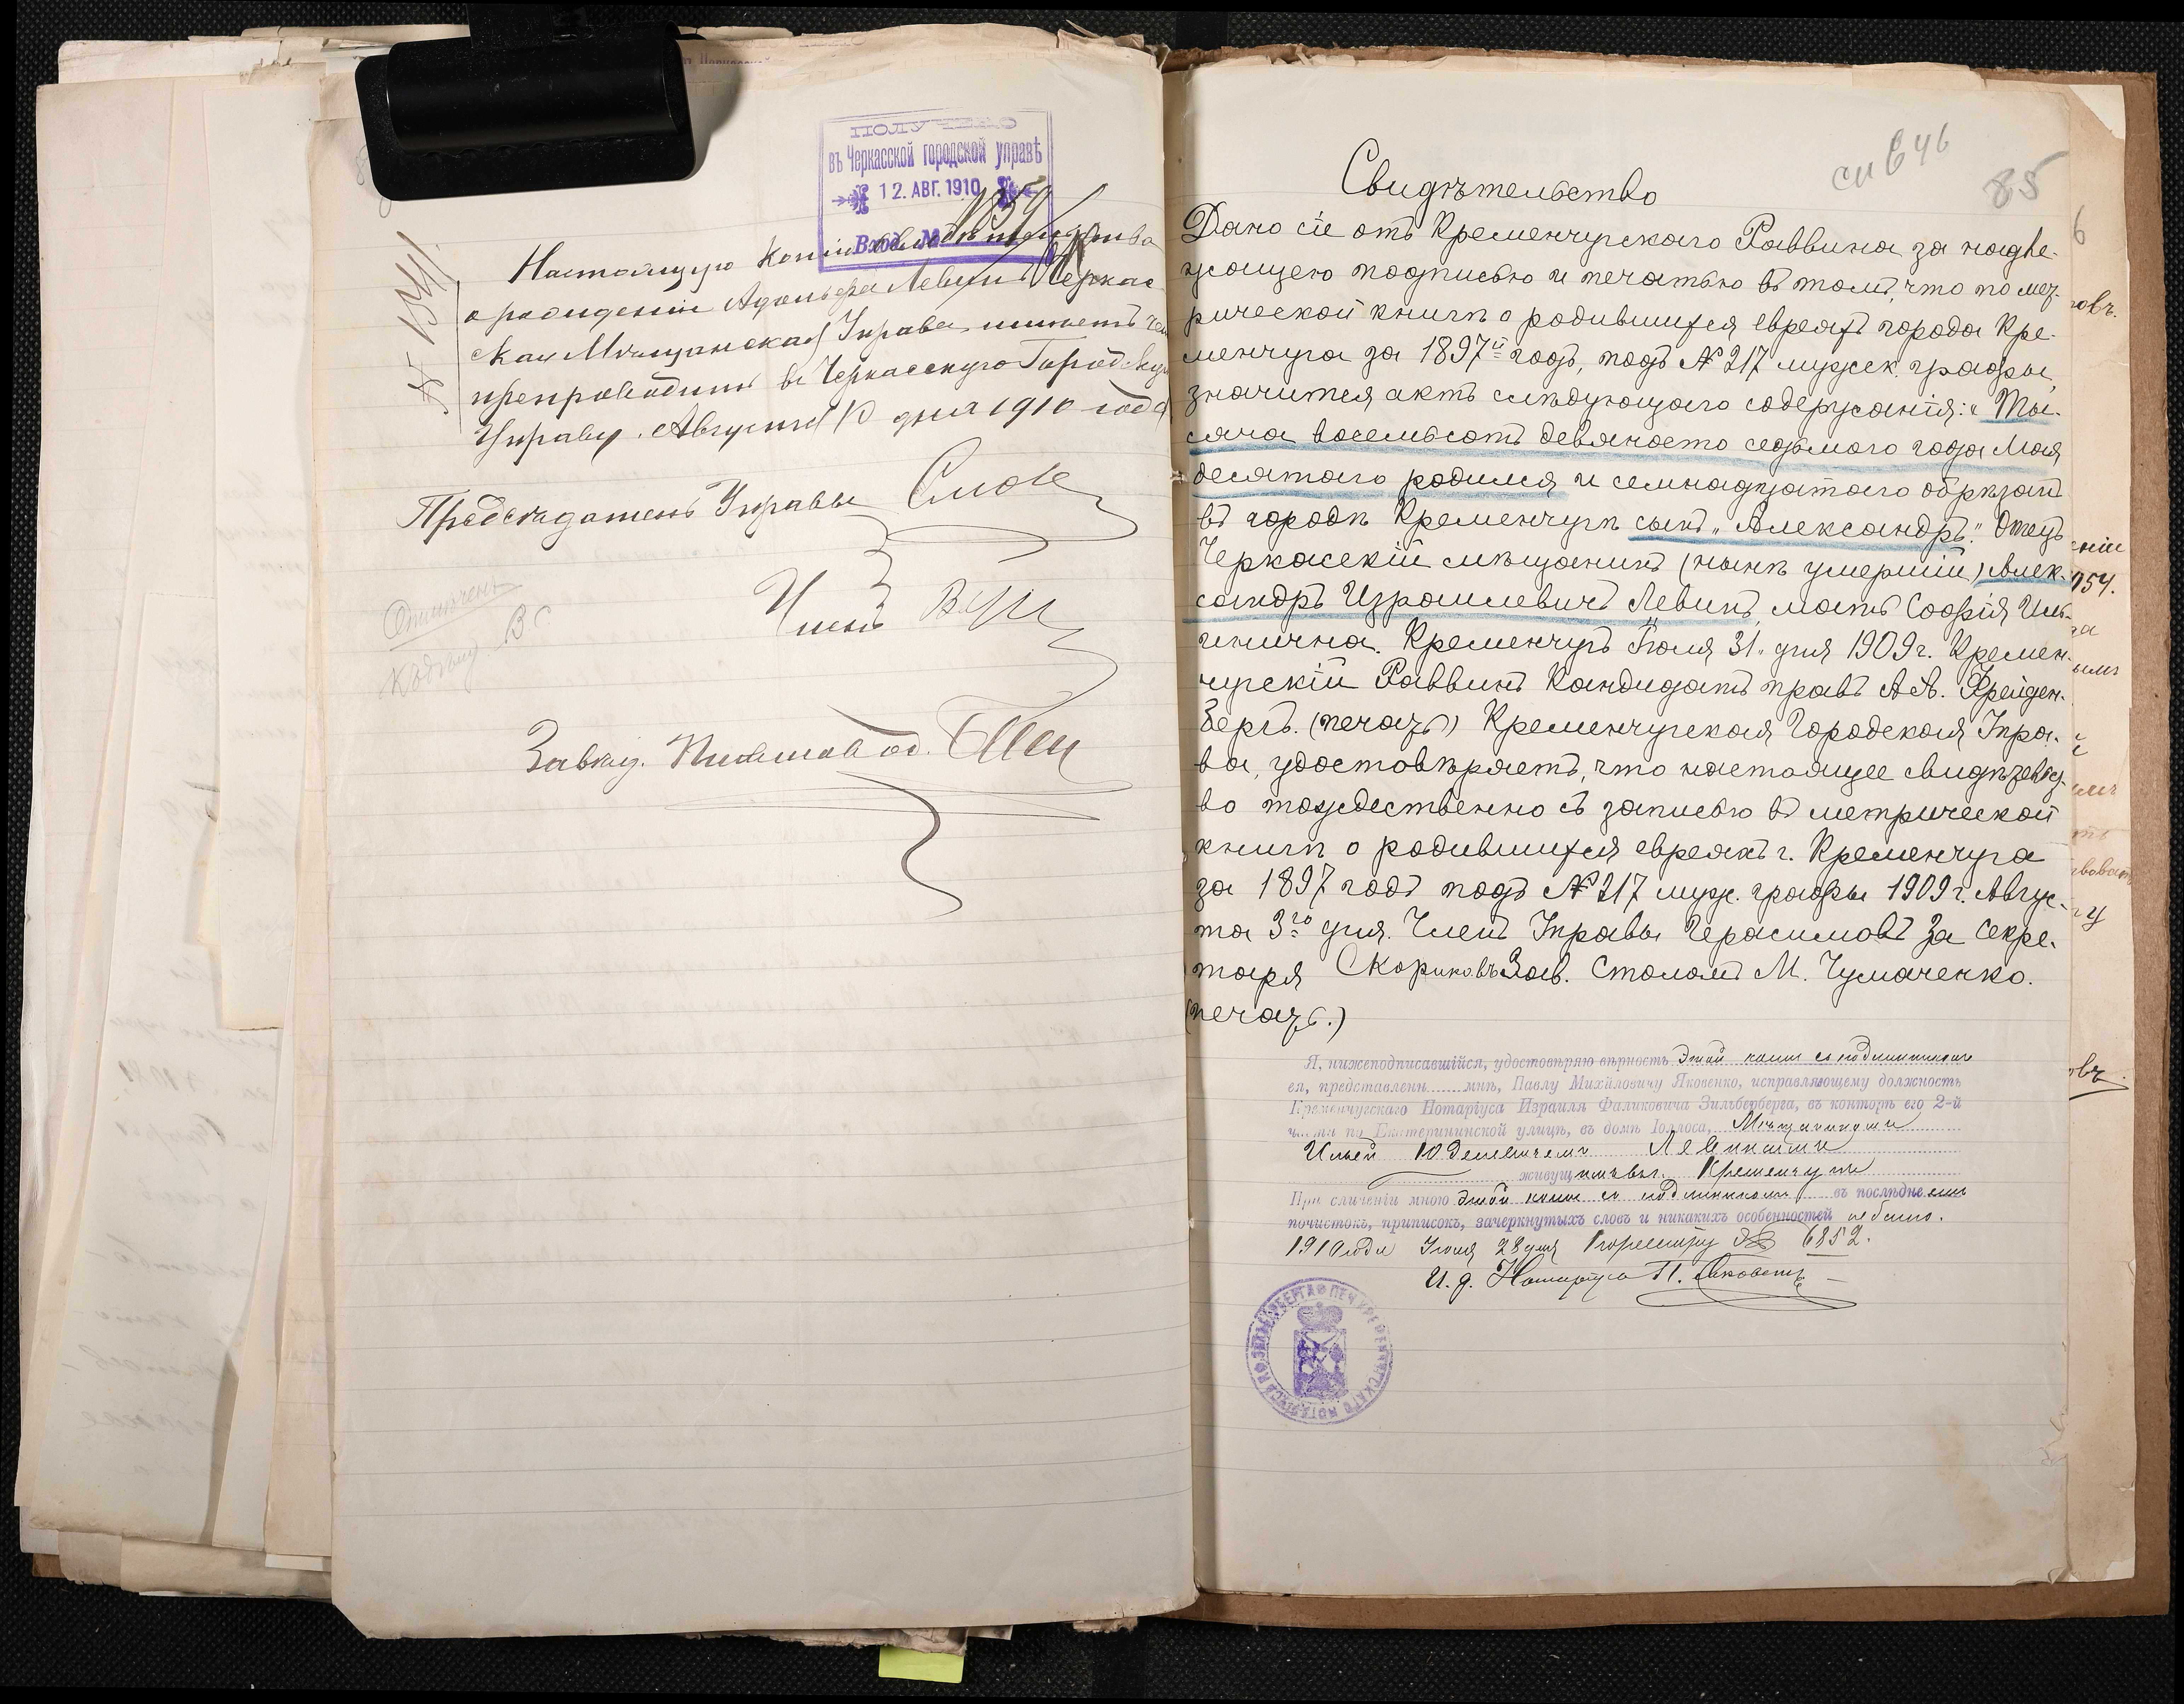 ПОЛУЧЕНО
въ Черкасской городской управѣ
12. АВГ. 1910
Вход. №
Настоящую копію свидѣтельства
о рожденіи Адольфа Левина Черкас
ская Мѣщанская Управа имѣетъ чес
препроводить въ Черкасскую Городскую
Управу. Августа 10 дня 1910 года
Предсѣдатель Управы
Членъ
Завѣд. Письмовод.
см 646
85
Свидѣтельство
Дано сіе отъ Кременчугскаго Раввина за надле-
жащею подписью и печатью въ томъ, что по мет-
рической книгѣ о родившихся евреяхъ города Кре-
менчуга за 1897й годъ, подъ № 217 мужск. графы,
значится актъ слѣдующаго содержанія: „Ты-
сяча восемьсотъ девяносто седьмого года Мая
десятаго родился и семнадцатаго обрѣзанъ
въ городѣ Кременчугѣ сынъ „Александръ". Отецъ
Черкасскій мѣщанинъ (нынѣ умершій) Алек-
сандръ Израилевичъ Левинъ, мать Софія Иль-
инична. Кременчугъ Іюля 31. дня 1909 г. Кремен-
чугскій Раввинъ Кандидатъ правъ А.А. Фрейден-
бергъ. (печать) Кременчугская Городская Упра-
ва, удостовѣряетъ, что настоящее свидѣтельст-
во тождественно съ записью въ метрической
книгѣ о родившихся евреяхъ г. Кременчуга
за 1897 годъ подъ № 217 муж. графы 1909 г. Авгус-
та 3го дня. Членъ Управы Герасимовъ За Секре-
таря Скориковъ Зав. Столомъ М. Чумаченко.
(печать.)
Я, нижеподписавшійся, удостовѣряю вѣрность этой копіи съ подлинникомъ
ея, представленн мнѣ, Павлу Михайловичу Яковенко, исправляющему должность
Кременчугскаго Нотаріуса Израиля Фаликовича Зильберберга, въ конторѣ его 2-й
части по Екатерининской улицѣ, въ домѣ Іоллоса, Мѣщаниномъ
Ильей Юделевичемъ Левинымъ
живущимъ въ г. Кременчугѣ
При сличеніи мною этой копіи съ подлинникомъ въ послѣднемъ
почистокъ, приписокъ, зачеркнутыхъ словъ и никакихъ особенностей не было.
1910 года Іюля 28 дня По реестру № 6852.
И. д. Нотаріуса П. Яковенко